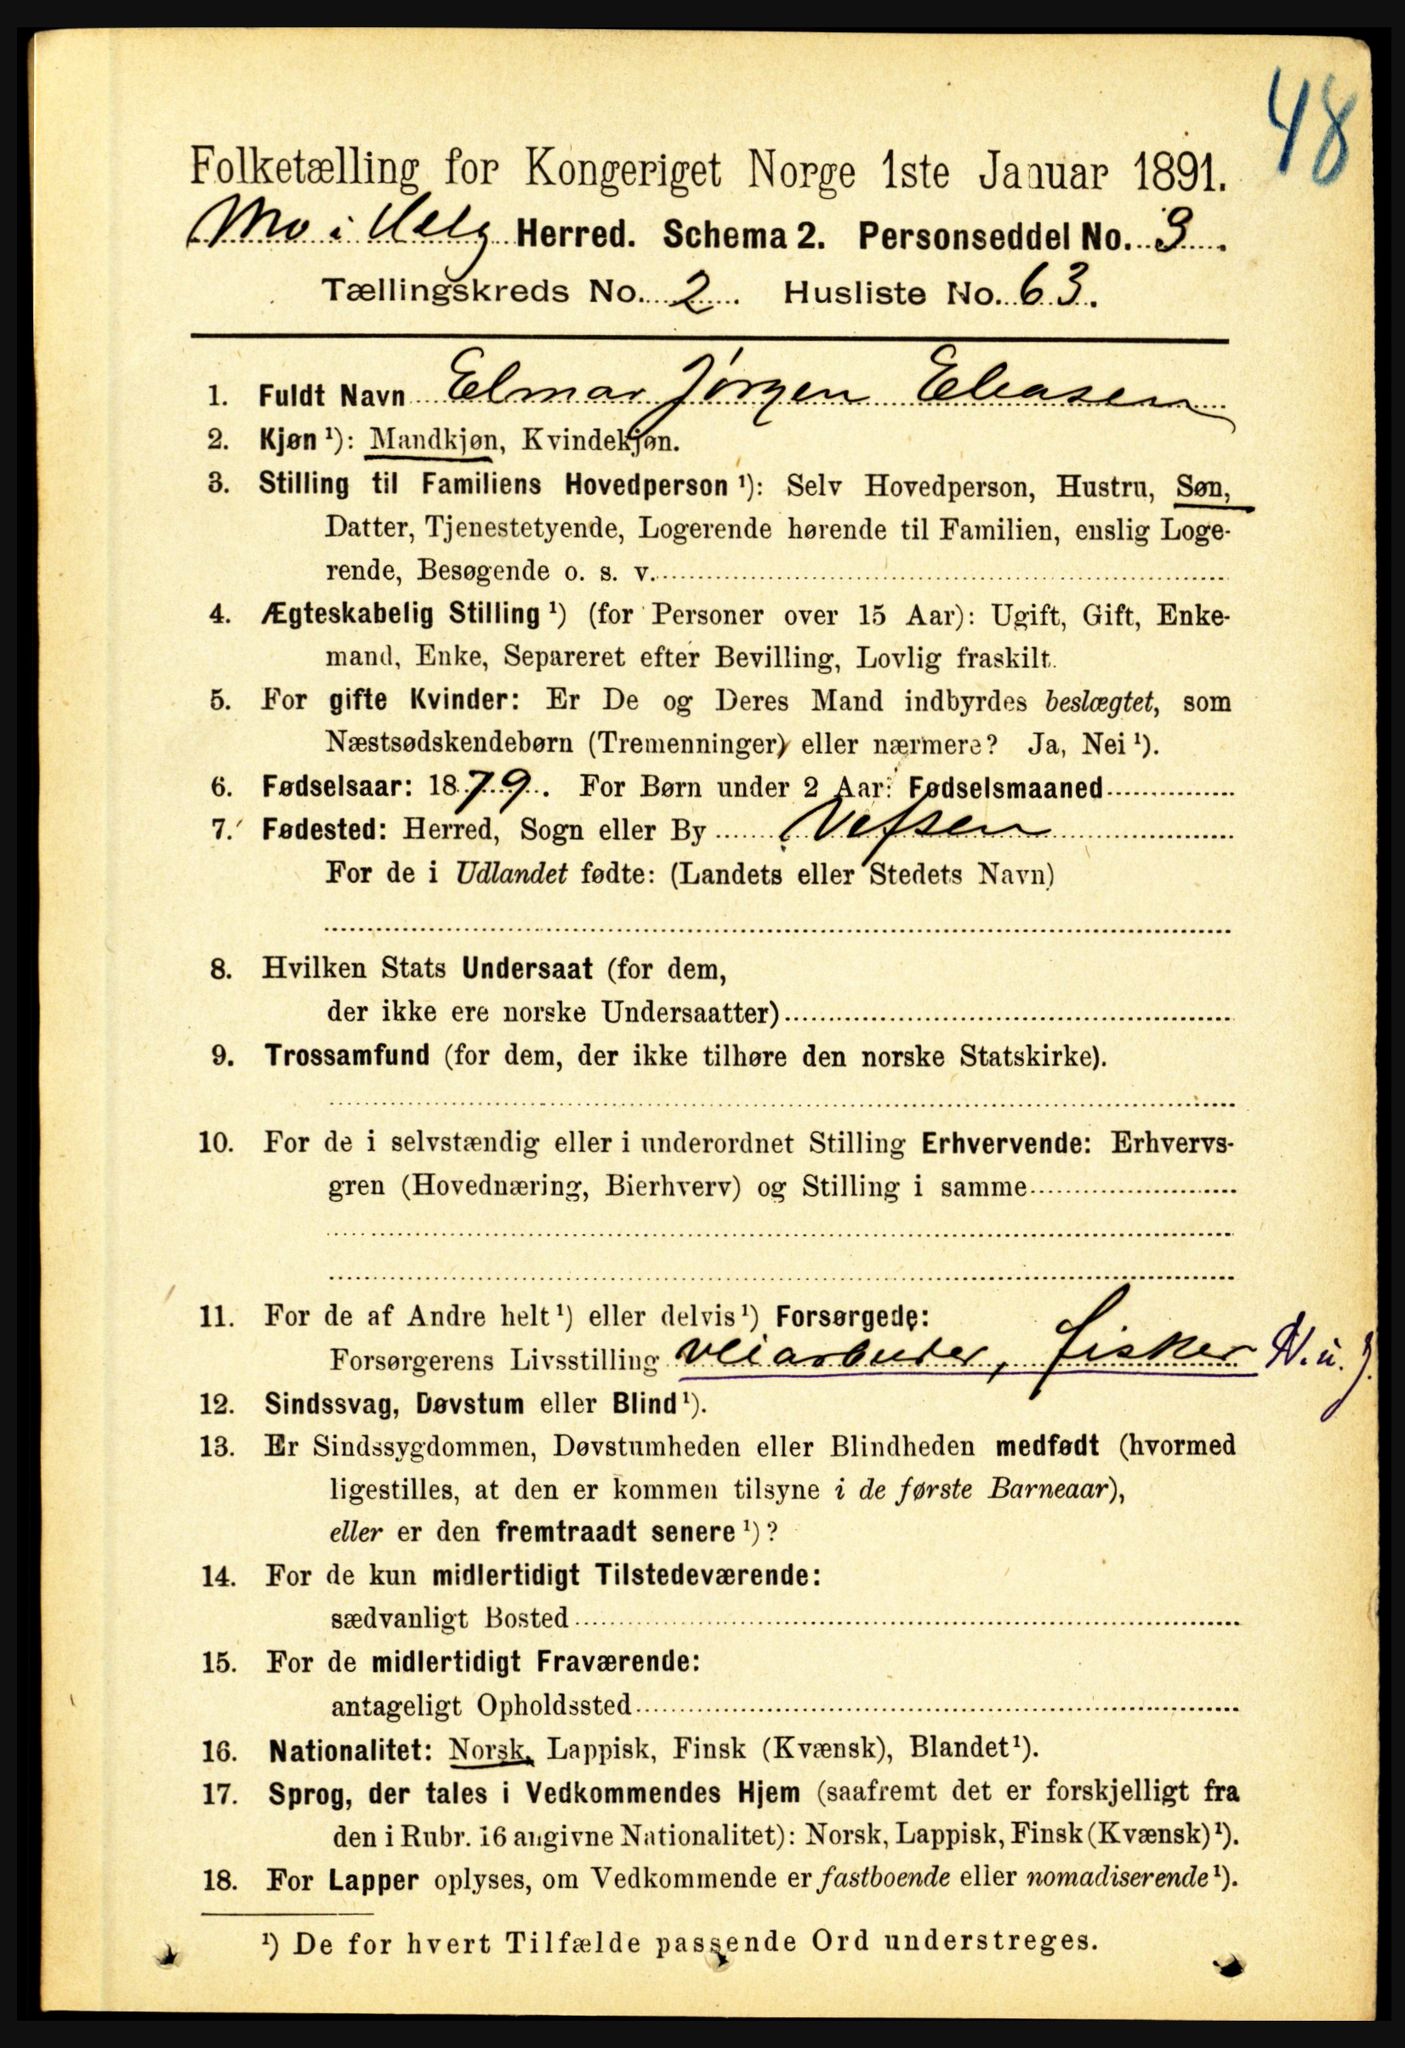 48
Folketælling for Kongeriget Norge 1ste Januar 1891.
Mo i Helg Herred. Schema 2. Personseddel No. 3.
Tællingskreds No. 2. Husliste No. 63.
1. Fuldt Navn Elmar Jørgen Eliasen
2. Kjøn ¹): Mandkjøn, Kvindekjøn.
3. Stilling til Familiens Hovedperson ¹): Selv Hovedperson, Hustru, Søn,
Datter, Tjenestetyende, Logerende hørende til Familien, enslig Loge-
rende, Besøgende o. s. v.
4. Ægteskabelig Stilling ¹) (for Personer over 15 Aar): Ugift, Gift, Enke-
mand, Enke, Separeret efter Bevilling, Lovlig fraskilt.
5. For gifte Kvinder: Er De og Deres Mand indbyrdes beslægtet, som
Næstsødskendebørn (Tremenninger) eller nærmere? Ja, Nei ¹).
6. Fødselsaar: 1879. For Børn under 2 Aar: Fødselsmaaned
7. Fødested: Herred, Sogn eller By Vefsen
For de i Udlandet fødte: (Landets eller Stedets Navn)
8. Hvilken Stats Undersaat (for dem,
der ikke ere norske Undersaatter)
9. Trossamfund (for dem, der ikke tilhøre den norske Statskirke).
10. For de i selvstændig eller i underordnet Stilling Erhvervende: Erhvervs-
gren (Hovednæring, Bierhverv) og Stilling i samme
11. For de af Andre helt ¹) eller delvis ¹) Forsørgede:
Forsørgerens Livsstilling Veiarbeider, fisker
12. Sindssvag, Døvstum eller Blind ¹).
13. Er Sindssygdommen, Døvstumheden eller Blindheden medfødt (hvormed
ligestilles, at den er kommen tilsyne i de første Barneaar),
eller er den fremtraadt senere ¹)?
14. For de kun midlertidigt Tilstedeværende:
sædvanligt Bosted
15. For de midlertidigt Fraværende:
antageligt Opholdssted
16. Nationalitet: Norsk, Lappisk, Finsk (Kvænsk), Blandet ¹).
17. Sprog, der tales i Vedkommendes Hjem (saafremt det er forskjelligt fra
den i Rubr. 16 angivne Nationalitet): Norsk, Lappisk, Finsk (Kvænsk) ¹).
18. For Lapper oplyses, om Vedkommende er fastboende eller nomadiserende ¹).
¹) De for hvert Tilfælde passende Ord understreges.